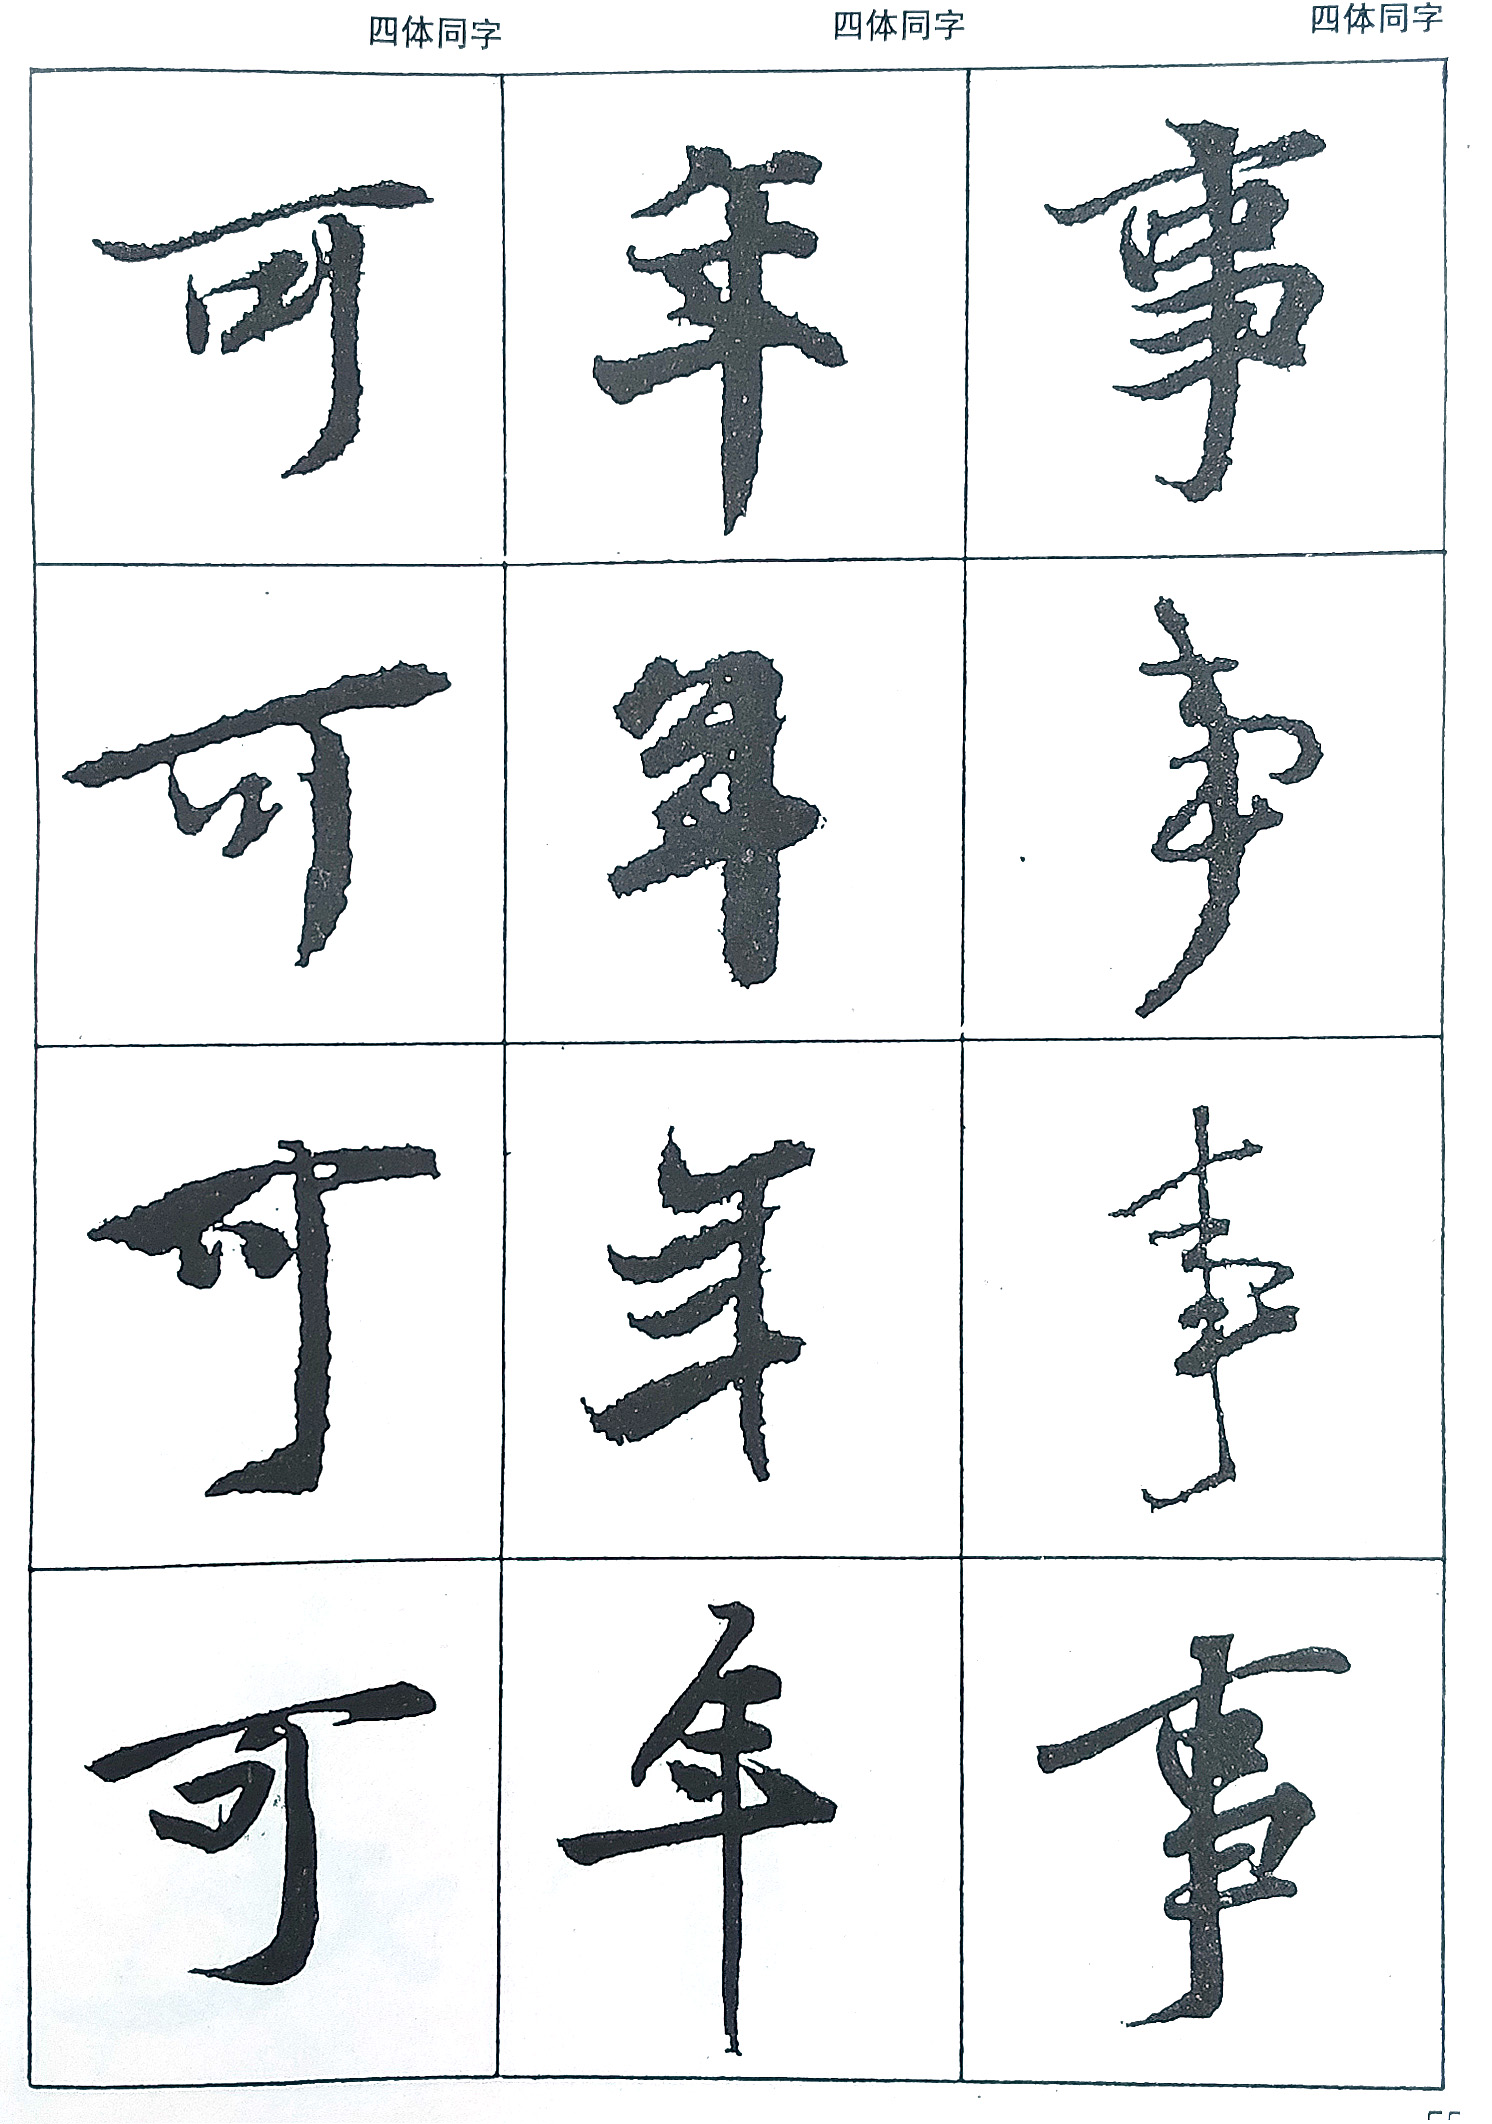 四体同字 四体同字 四体同字
可 年 事
可 年 事
可 年 事
可 年 事